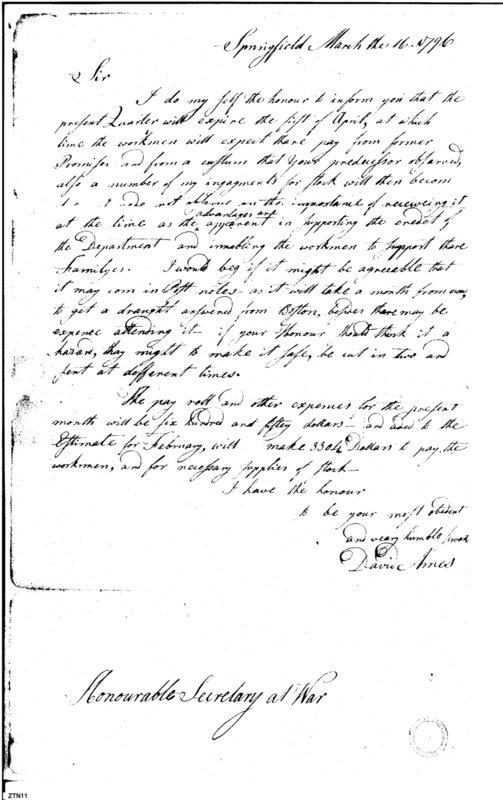 Springfield March the 16 1796
Sir
I do my self the honour to inform you that the
present Quarter will expire the first of April, at which
time the workmen will expect thare pay from former
Promises and from a custum that your preducessor observed,
also a number of my ingagments for stock will then becom
I do not observe on the importance of receiving it
at the time as the advantages are apparent in supporting the credet of
the Department and innabling the workmen to support thare
Familyes. I would beg if it might be agreeable that
it may com in Post notes - as it will take a month from
to get a draught answered from Boston, besides thare may be
expence attending it - if your Honour should think it a
hazard, thay might to make it safe, be cut in two and
sent at different times.
The pay roll and other expences for the present
month will be six hundred and fifty dollars - and add to the
Estimate for February, will make 3304 Dollars to pay the
workmen, and for necessary supplies of stock -
I have the honour
to be your most obedient
and veary humble
David Ames
Honourable Secretary at War
ZTN11